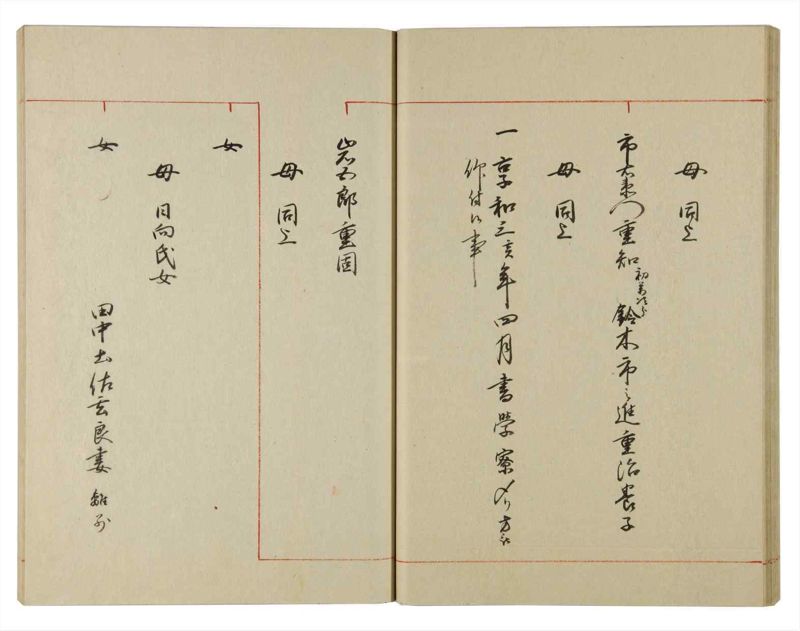 母同上
市右衛門重知 初 鈴木市之進重治養子
母同上
一 享和三亥年四月書学寮〆り方被
仰付候事
岩五郎重固
母同上
女
母日向氏女
女 田中土佐玄良妻 離別